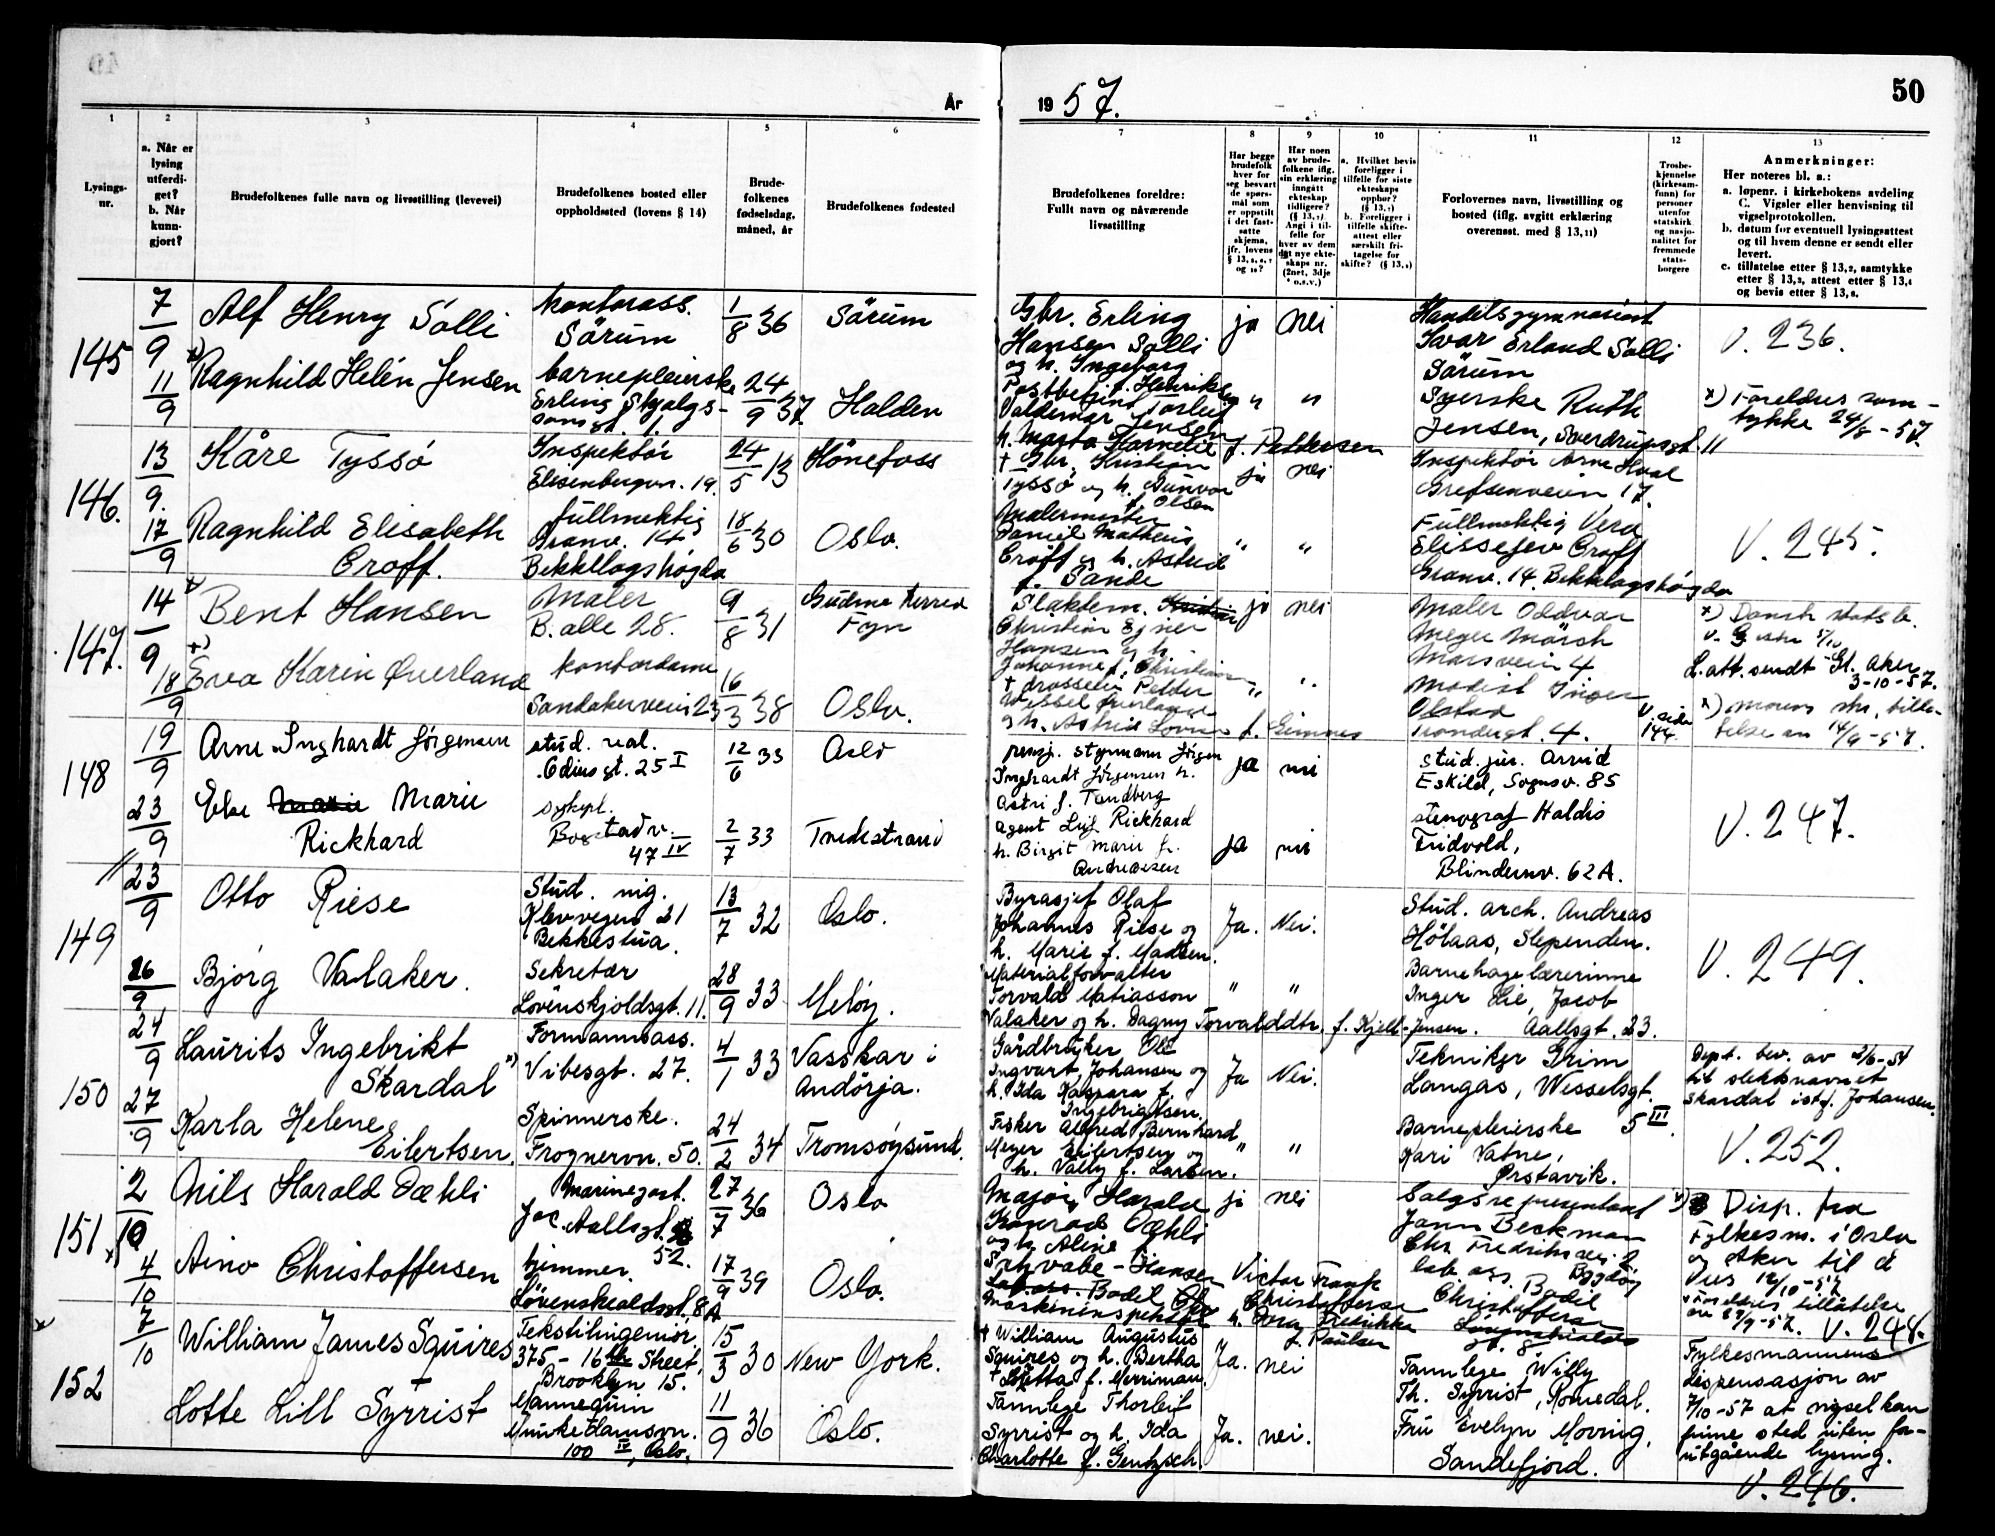 År
19 57.
50
1
2
3
4
5
6
7
8
9
10
11
12
13
Lysings-
nr.
a. Når er
lysing
utferdi-
get?
b. Når
kunn-
gjort?
Brudefolkenes fulle navn og livsstilling (levevei)
Brudefolkenes bosted eller
oppholdssted (lovens § 14)
Brude-
folkenes
fødselsdag,
måned, år
Brudefolkenes fødested
Brudefolkenes foreldre:
Fullt navn og nåværende
livsstilling
Har begge
brudefolk
hver for
seg besvart
de spørs-
mål som
er oppstilt
i det fast-
satte
skjema,
jfr. lovens
Har noen
av brude-
folkene iflg.
sin erklæring
inngått
ekteskap
tidligere?
(§ 13,7)
Angi i til-
felle for
hver av dem
det nye ekte-
skaps nr.
(2net, 3dje
o.s.v.)
a. Hvilket bevis
foreligger i
tilfelle for siste
ekteskaps
opphør?
b. Foreligger i
tilfelle skifte-
attest eller
særskilt fri-
tagelse for
skifte?
Forlovernes navn, livsstilling og
bosted (iflg. avgitt erklæring
overensst. med § 13,11)
Trosbe-
kjennelse
(kirkesam-
funn) for
personer
utenfor
statskirk
og nasjo-
nalitet for
fremmede
stats-
borgere
Anmerkninger:
Her noteres bl. a.:
a. løpenr. i kirkebokens avdeling
C. Vigsler eller henvisning til
vigselprotokollen.
b. datum for eventuell lysingsattest
og til hvem denne er sendt eller
levert.
c. tillatelse etter § 13,2, samtykke
etter § 13,3, attest etter § 13,4
og bevis etter § 13,8.
145
7/9
Alf Henry Solli
kontorass.
Sörum
1/8 36
Sörum
Gbr. Erling
Hansen Solli
og h. Ingeborg
f. Henriksen
ja
nei
Handelsgymnasiast
Ivar Erland Solli
Sörum
V. 236.
11/9
x)
Ragnhild Helén Jensen
barnepleierske
Erling Skjalgs-
sonsgt. 1.
24/9 37.
Halden
Postbetjent Torleif
Valdemar Jensen
h. Marta Kornelie f. Pettersen
"
"
Syerske Ruth
Jensen, Sverdrupsgt. 11
x) Foreldres sam-
tykke 24/8 - 57.
146.
13/9.
Kåre Tyssö
Inspektör
Elisenbergvn. 19.
24/5 13
Hönefoss
+ Gbr. Kristian
Tyssö og h. Gunvor
f. Olsen
ja
nei
Inspektör Arne Hval
Grefsenveien 17.
V. 245.
17/9
Ragnhild Elisabeth
Croff.
fullmektig
Granv. 14
Bekkelagshøgda
18/6 30
Oslo.
Malermester
Daniel Matheus
Croff og h. Astrid
f. Sande
"
"
Fullmektig Vera
Elissejev Croff
Granv. 14 Bekkelagshøgda
147.
14/9
x
Bent Hansen
Maler
B. alle 28.
9/8 31
Gudme herred
Fyn
Slakterm.
Christian Ejner
Hansen og h.
Johanne f. Christiansen
ja
nei
Maler Oddvar
Meyer Mörch
Marsveien 4
x) Dansk statsb.
L.att. sendt Gl. Aker
3-10-57.
18/9
x)
Eva Karin Øverland
kontordame
Sandakerveien 23
16/3 38
Oslo.
+ Drosjeeier Peder
Wessel Øverland
og h. Astrid Lovise f. Gimnes
"
"
Modist Inger
Olstad
Tröndergt. 4.
V. side
144.
x) Morens skr. tilla-
telse av 14/9-57.
148
19/9
Arne Inghardt Jørgensen
stud. real.
Odinsgt. 25 I
12/6 33
Oslo
pensj. styrmann Jörgen
Inghardt Jørgensen h.
Astri f. Tandberg
ja
nei
stud. jur. Arvid
Eskild, Sognsv. 85
V. 247.
23/9
Else Marie Marie
Rickhard
sykepl.
Bogstadv.
47 IV
2/7 33
Tvedestrand
Agent Leif Rickhard
h. Birgit Marie f.
Andreasen
ja
nei
stenograf Haldis
Fridvold,
Blindernv. 62 A.
149
23/9
Otto Riese
Stud. ing.
Kløvvegen 21
Bekkestua.
13/7 32
Oslo.
Byrasjef Olaf
Johannes Riese og
h. Marie f. Madsen.
Ja.
Nei.
Stud. arch. Andreas
Hölaas, Slependen.
V. 249.
26/9
Bjørg Valaker.
Sekretær
Lovenskjoldsgt. 11.
28/9 33
Meløy.
Materialforvalter
Torvald Matiasson
Valaker og h. Dagny Torvalddtr. f. Kjell-Jensen.
"
"
Barnehagelærerinne
Inger Lie, Jacob
Aallsgt. 23.
150
24/9
Laurits Ingebrikt
Skardal
x)
Formannsass.
Vibesgt. 27.
4/1 33
Vasskar i
Andörja.
Gårdbruker Ole
Ingvart Johansen og
h. Ida Kaspara f.
Ingebrigtsen.
Ja
Nei.
Tekniker Grim
Langås, Wesselsgt.
5 III.
Dept. bev. av 2/6-54
til slektsnavnet
Skardal istf. Johansen.
V. 252.
27/9
Karla Helene
Eilertsen.
Spinnerske.
Frognervn. 50.
24/2 34
Tromsøysund.
Fisker Alfred Bernhard
Meyer Eilertsen og
h. Vally f. Larsen.
"
"
Barnepleierske
Kari Vatne,
Ørstavik.
151
2/10
Nils Harald Dæhli
Marinegast.
Jac. Aallsgt.
52.
27/7 36
Oslo
Major Harald
Konrad Dæhli
og h. Aline
Schwabe-Hansen
ja
nei
Salgsrepresentant
Jann Beckman
Chr. Fredriksvei 2
Bygdøy
x) Disp. fra
Fylkesm. i Oslo
og Aker til å
4/10
x
Aino Christoffersen
hjemmev.
Løvenskioldsgt. 8 A
17/9 39
Oslo.
Lab.ass. Bodil
Maskininspektør Victor Frank
Christoffersen
h. Dora Fredrikke
f. Paulsen
lab. ass. Bodil
Christoffersen
Lövenskiolds
gt. 8
Foreldres tillatelse
av 27/9-57. V. 248.
152
7/10
x
William James Squires
Tekstilingeniør
375 - 16th Street,
Brooklyn 15.
15/3 30
New York.
+ William Augustus
Squires og h. Bertha
+ Loretta f. Merriman.
Ja.
nei
Tannlege Willy
Th. Syrrist, Romedal.
Fylkesmannens
dispensasjon av
7/10-57 at vigsel kan
finne sted uten for-
utgående lysing.
V. 246.
Lotte Lill Syrrist
Mannequin
Munkedamsvn.
100 IV, Oslo.
11/9 36
Oslo.
Tannlege Thorleif
Syrrist og h. Ida
Charlotte f. Gentzsch.
Ja.
nei.
Fru Evelyn Moving,
Sandefjord.